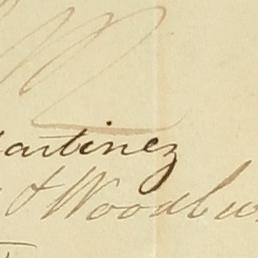 Martinez
& Woodbu